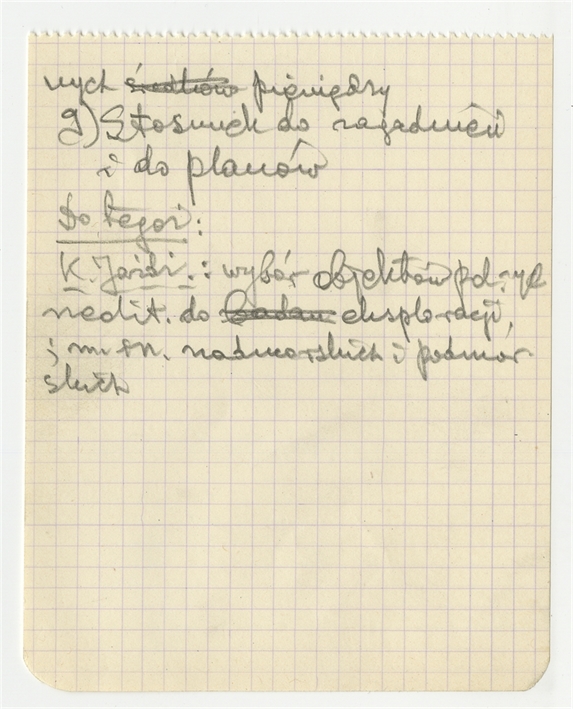 nych ~~środków~~ pieniędzy
9) Stosunek do zagadnień
i do planów
Do tegoż:
K. Jażdż.: wybór objektów pd.
nedit. do ~~badań~~ eksploracji,
i m. in. nadmorskich i podmor-
skich